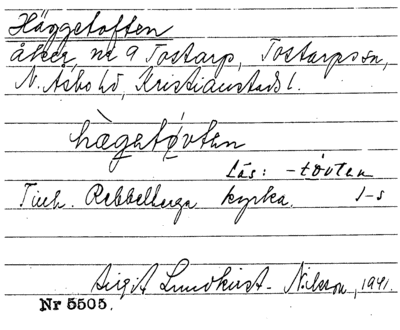 Häggetoften
åker, nr 9 Tostarp, Tostarps sn,
N. Åsbo hd, Kristianstads l.
hàgetǿvten
Läs: -tǿvten
Tillh. Rebbelberga kyrka. 1-s
Birgit Lundkvist-Nilsson, 1941.
Nr 5505.